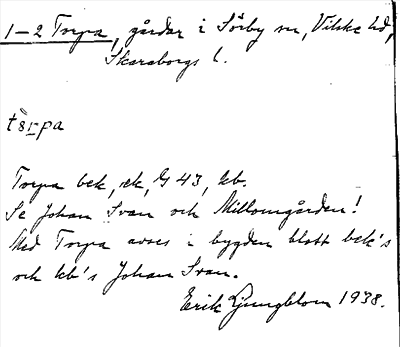 1–2 Torpa, gårdar i Sörby sn, Vilske hd,
Skaraborgs l.
tàrpa
Torpa bek, ek, G 43, kb.
Se Johan Svan och Mellomgården!
Med Torpa avses i bygden blott bek's
och kb's Johan Svan.
Erik Ljungblom 1938.